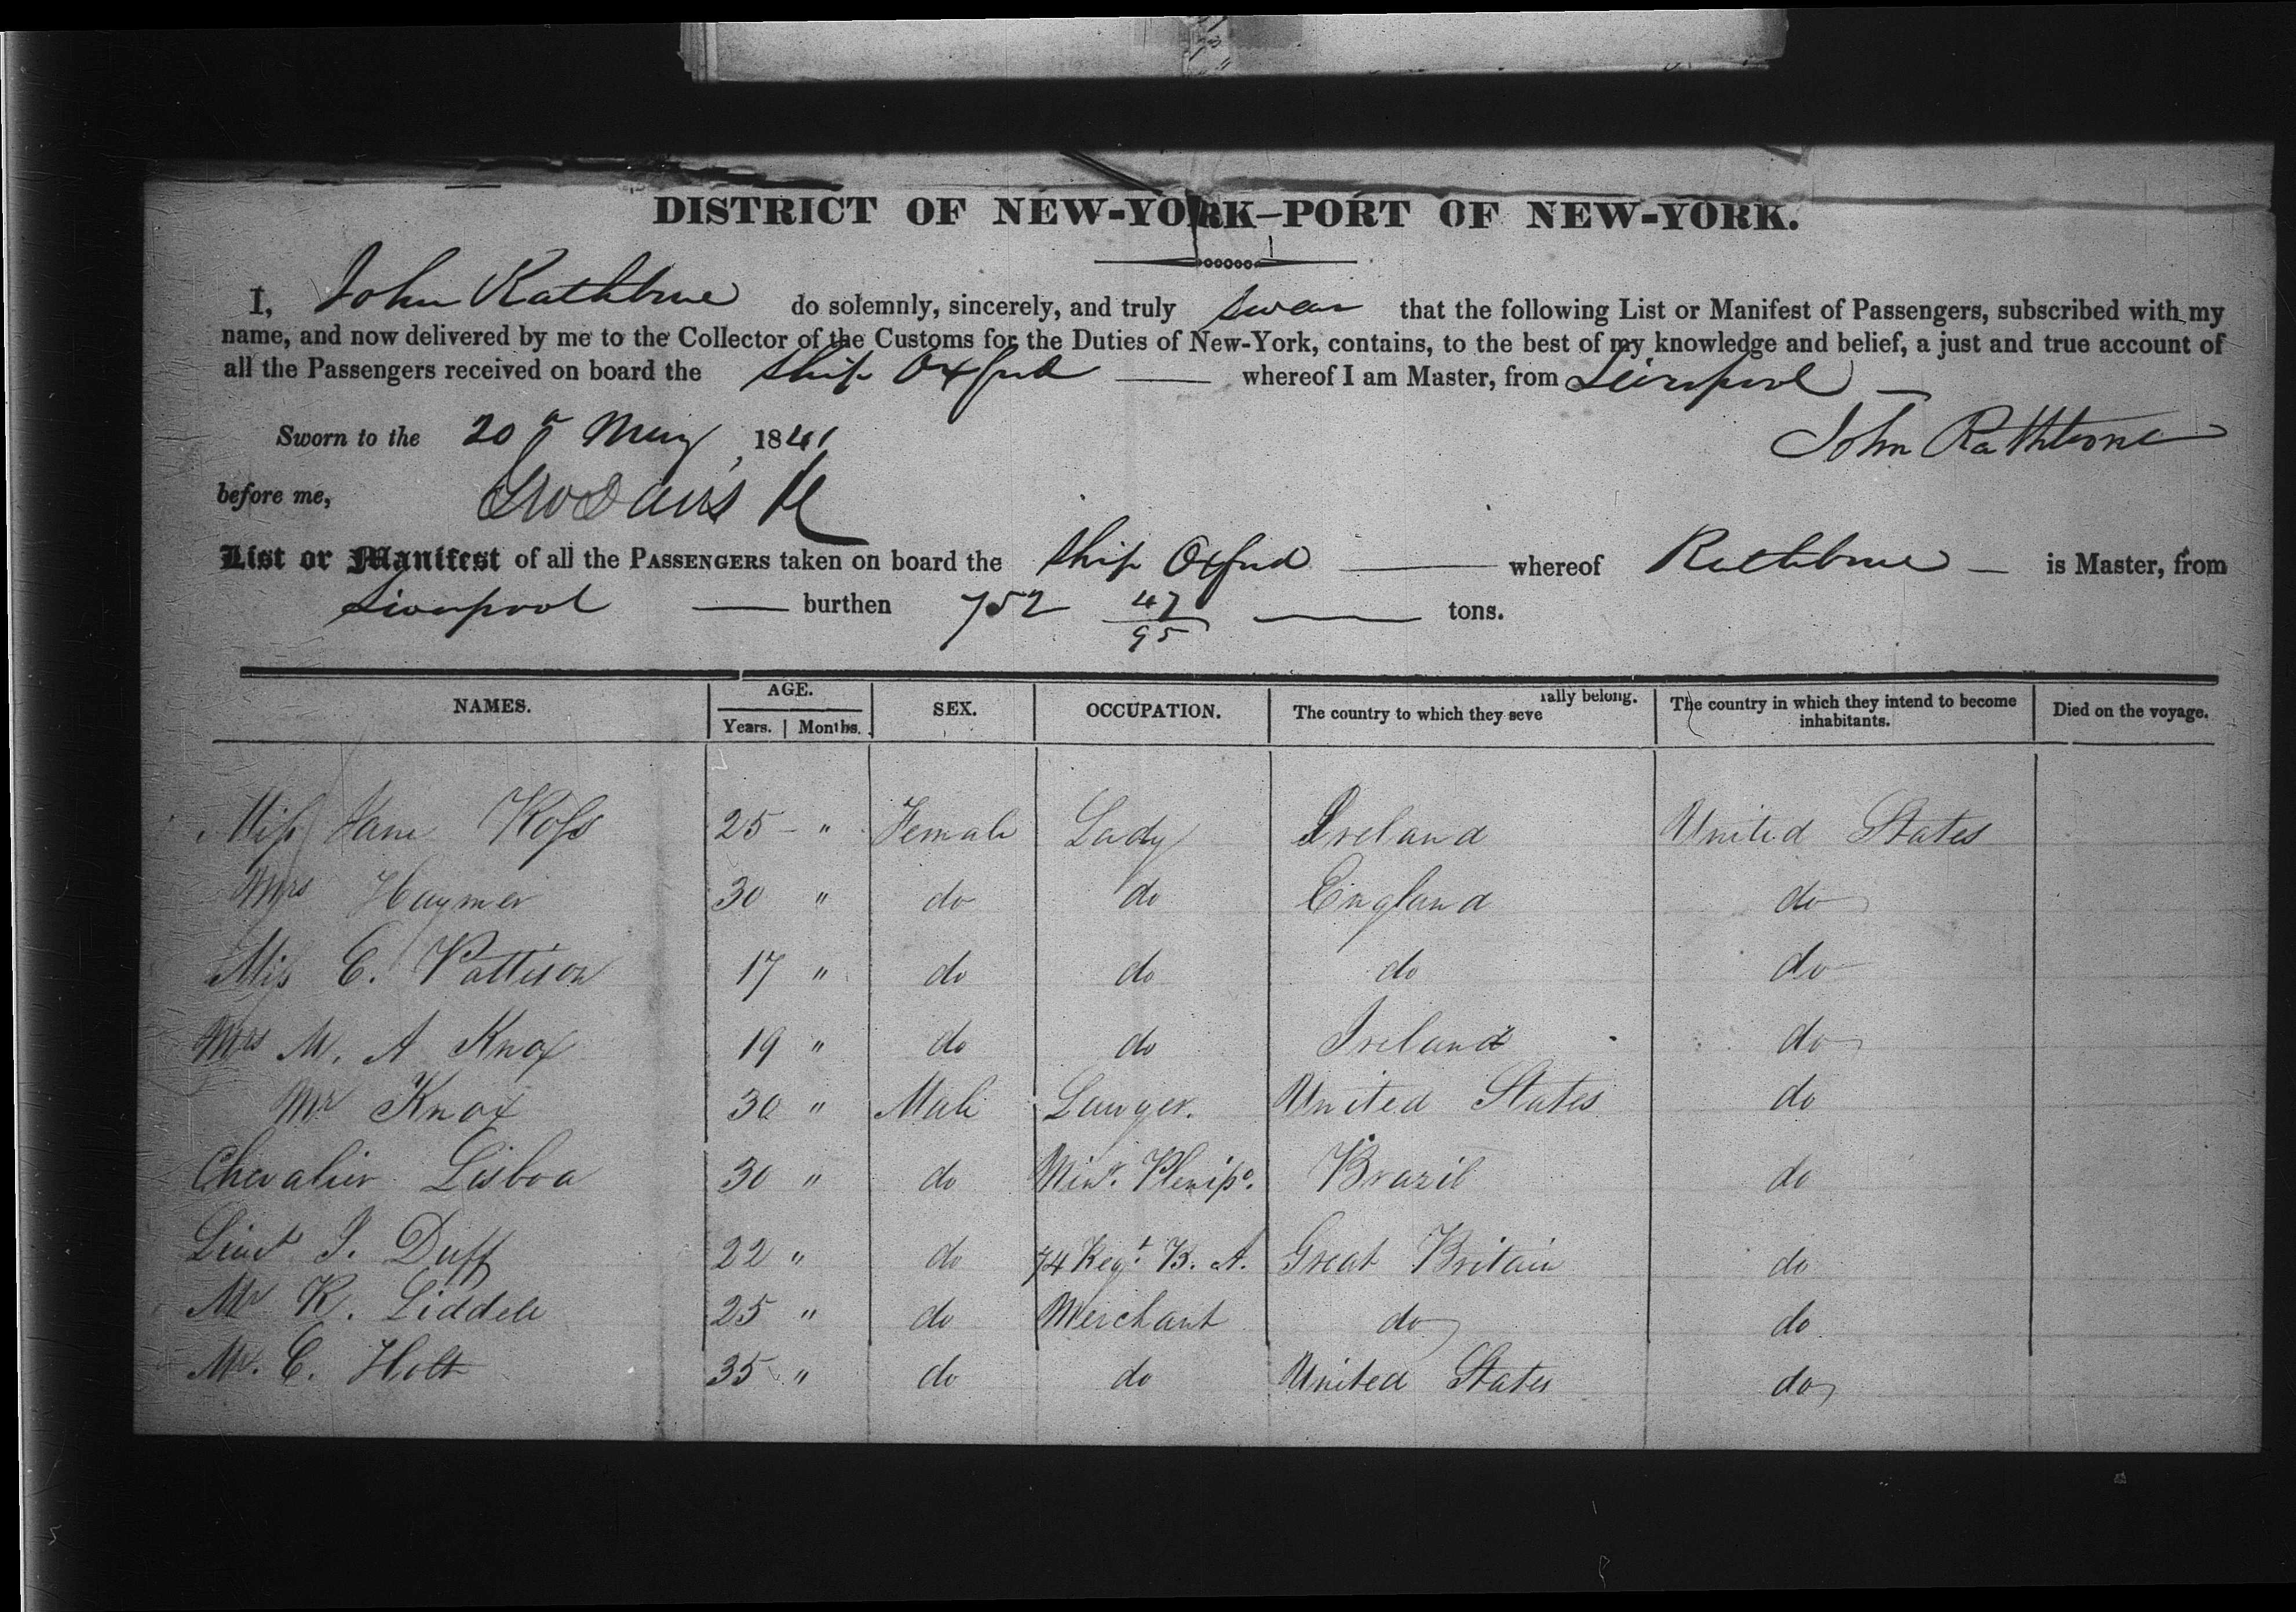 DISTRICT OF NEW-YORK—PORT OF NEW-YORK.
I, John Rathbone do solemnly, sincerely, and truly swear that the following List or Manifest of Passengers, subscribed with my
name, and now delivered by me to the Collector of the Customs for the Duties of New-York, contains, to the best of my knowledge and belief, a just and true account of
all the Passengers received on board the Ship Oxford — whereof I am Master, from Liverpool —
Sworn to the 20th May, 1841 John Rathbone
before me,
List or Manifest of all the PASSENGERS taken on board the Ship Oxford — whereof Rathbone — is Master, from
Liverpool — burthen 752 47/95 — tons.
NAMES. AGE. Years. | Months. SEX. OCCUPATION. The country to which they severally belong. The country in which they intend to become inhabitants. Died on the voyage.
Miss Jane Ross 25 - " Female Lady Ireland United States
Mrs Haymer 30 " do do England do
Miss E. Pattison 17 " do do do do
Mrs M. A Knox 19 " do do Ireland do
Mr Knox 30 " Male Lawyer. United States do
Chevalier Lisboa 30 " do Minr. Plenipo. Brazil do
Lieut J. Duff 22 " do 74 Regt. B. A. Great Britain do
Mr R. Liddell 25 " do Merchant do do
Mr. C. Holt 35 " do do United States do